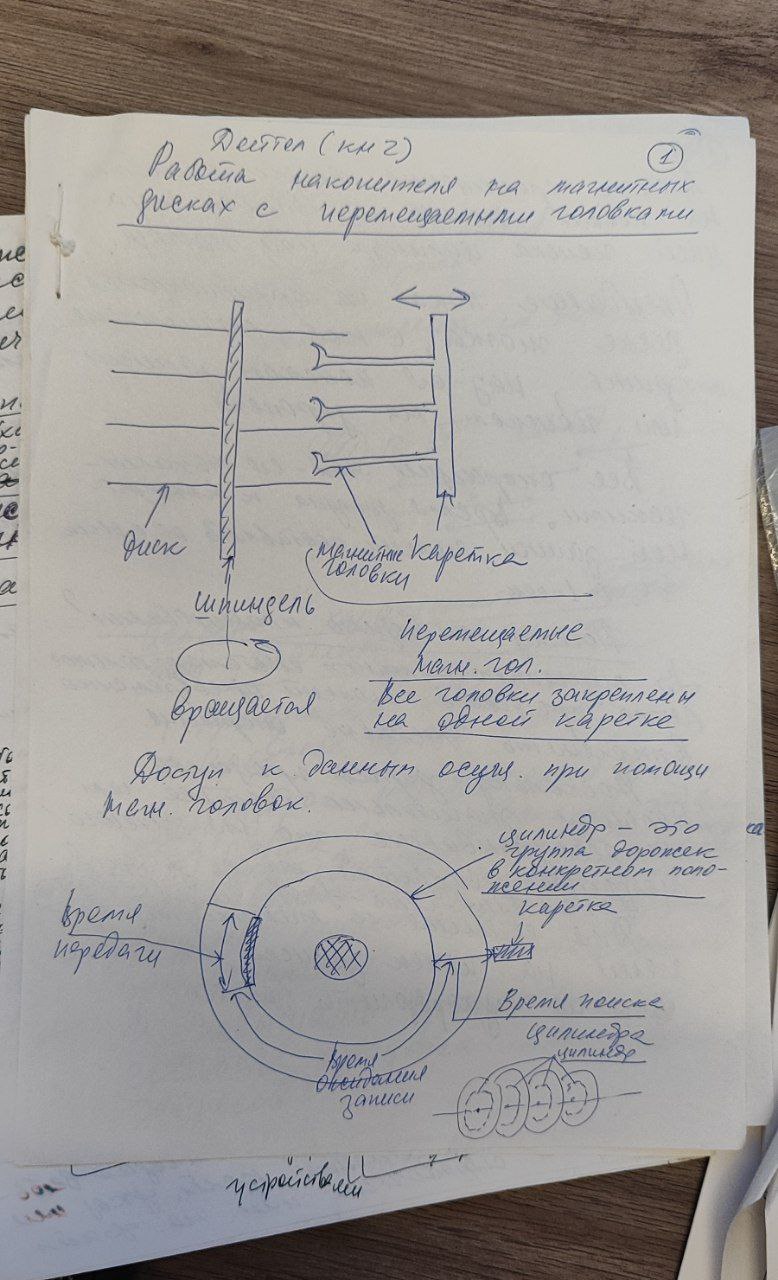 Дейтел (кн 2)
1
Работа накопителя на магнитных
дисках с перемещаемыми головками
диск
магнитные
головки
каретка
шпиндель
Перемещаемые
магн. гол.
вращается
Все головки закреплены
на одной каретке
Доступ к данным осущ. при помощи
магн. головок.
цилиндр – это
группа дорожек
в конкретном поло-
жении
каретка
Время
передачи
Время поиска
цилиндра
цилиндр
Время
ожидания
записи
устройствами